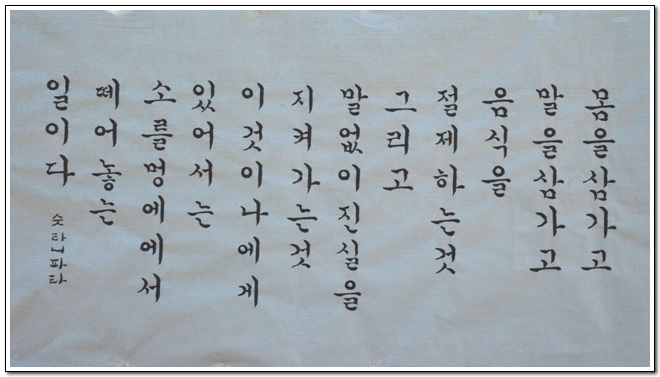 몸을삼가고
말을삼가고
음식을
절제하는것
그리고
말없이진실을
지켜가는것
이것이나에게
있어서는
소를멍에에서
떼어놓는
일이다
숫타니파타